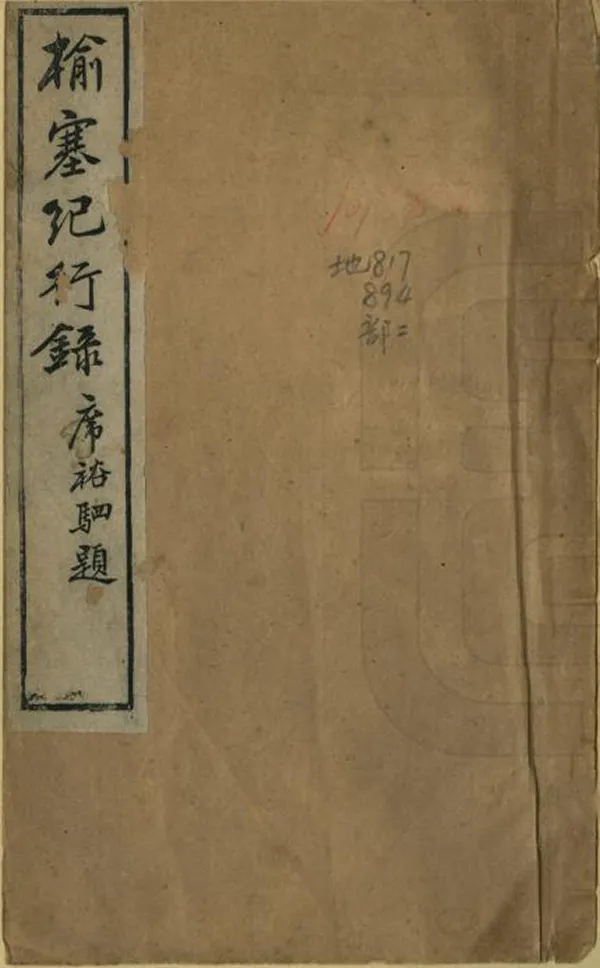 榆塞紀行錄
席裕駟題
地817
894
部二